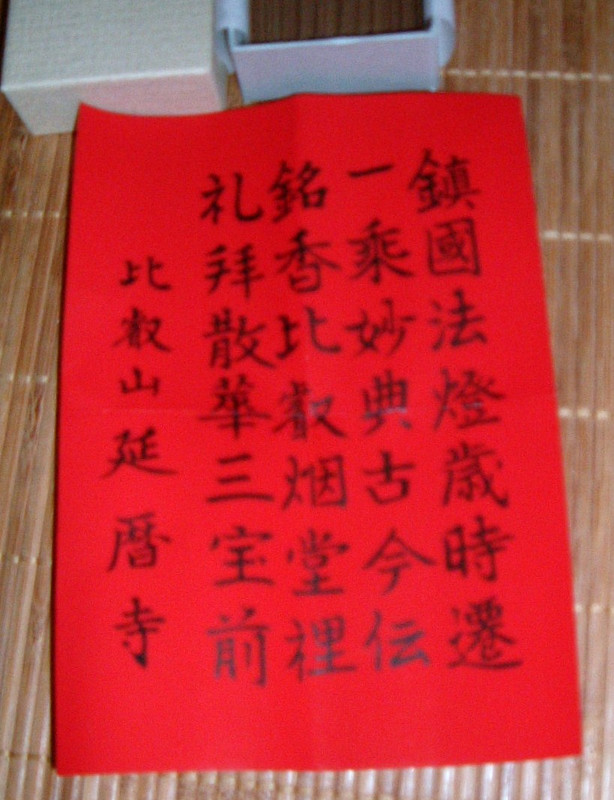 鎮國法燈歳時遷
一乘妙典古今伝
銘香比叡烟堂裡
礼拜散華三宝前
比叡山延暦寺